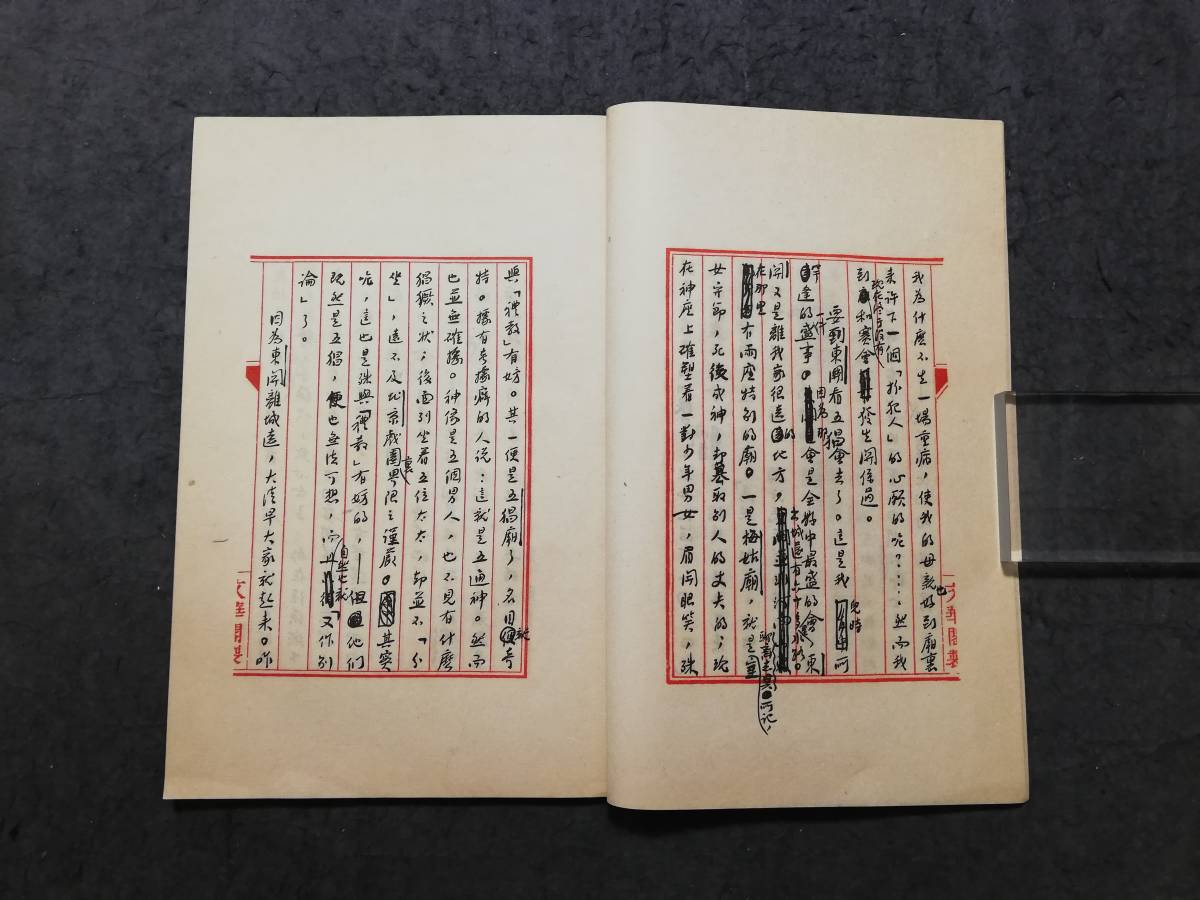 我為什麼不生一場重病，使我的母親也好到廟裏
去許下一個「扮犯人」的心願的呢？……然而我
到現在終于沒有和賽會發生關係過。
要到東關看五猖會去了。這是我兒時所
罕逢的一件盛事。因為那會是全縣中最盛的會，東
關又是離我家很遠的地方，出城還有六十多里水路。
在那里有兩座特別的廟。一是梅姑廟，就是聊齋志異所記，室
女守節，死後成神，却篡取別人的丈夫的；現
在神座上確塑着一對少年男女，眉開眼笑，殊
與「禮教」有妨。其一便是五猖廟了，名目就奇
特。據有考據癖的人說：這就是五通神。然而
也並無確據。神像是五個男人，也不見有什麼
猖獗之狀；後面列坐着五位太太，却並不「分
坐」，遠不及北京戲園裏界限之謹嚴。其實
呢，這也是殊與「禮教」有妨的，——但他們
既然是五猖，便也無法可想，而且自然也就「又作別
論」了。
因為東關離城遠，大清早大家就起來。昨
文華閣製
文華閣製